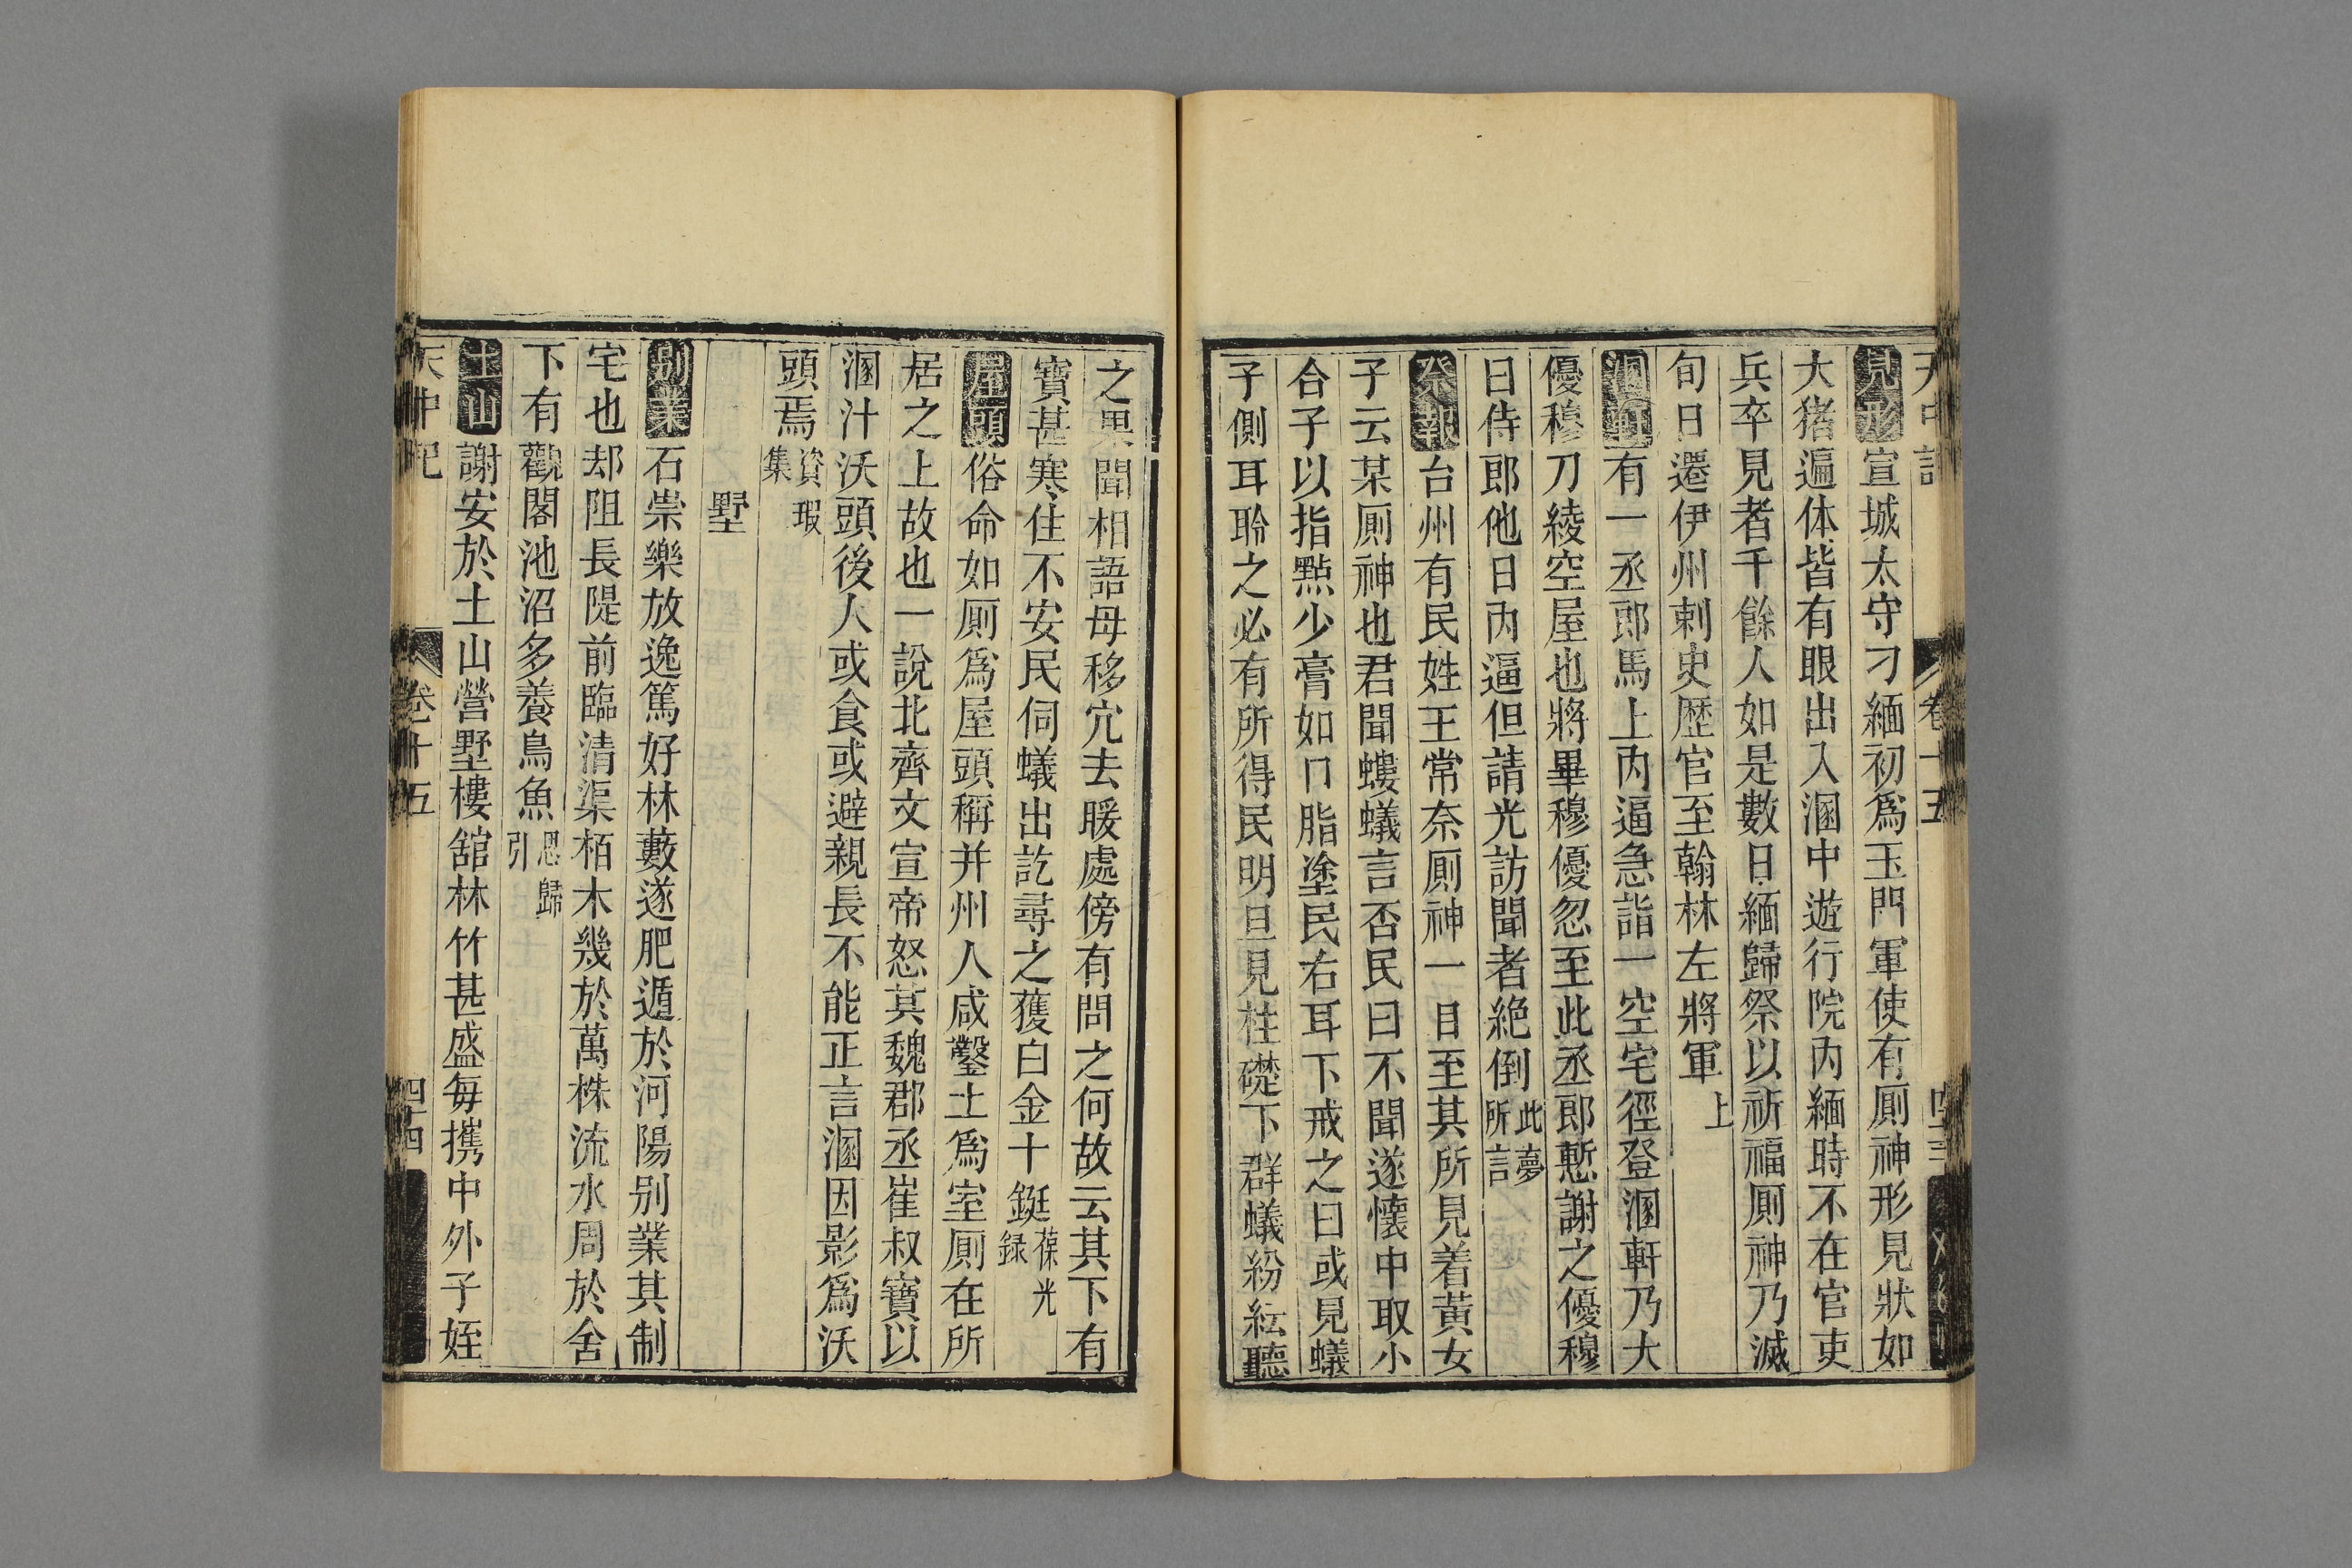 天中記 卷十五
見形宣城太守刁緬初爲玉門軍使有厠神形見狀如
大猪遍体皆有眼出入溷中遊行院内緬時不在官吏
兵卒見者千餘人如是數日緬歸祭以祈福厠神乃滅
旬日遷伊州刺史歷官至翰林左將軍上
溷軒有一丞郎馬上内逼急詣一空宅徑登溷軒乃大
優穆刀綾空屋也將畢穆優忽至此丞郎慙謝之優穆
曰侍郎他日内逼但請光訪聞者絶倒此夢所言
祭報台州有民姓王常奈厠神一目至其所見着黃女
子云某厠神也君聞螻蟻言否民曰不聞遂懷中取小
合子以指㸃少膏如口脂塗民右耳下戒之曰或見蟻
子側耳聆之必有所得民明旦見柱礎下群蟻紛紜聽
之果聞相語母移穴去暖處傍有問之何故云其下有
寶甚寒住不安民伺蟻出訖尋之獲白金十鋌葆光録
屋頭俗命如厠爲屋頭稱并州人咸鑿土爲室厠在所
居之上故也一說北齊文宣帝怒其魏郡丞崔叔寶以
溷汁沃頭後人或食或避親長不能正言溷因影爲沃
頭焉資瑕集
墅
别業石崇樂放逸篤好林藪遂肥遁於河陽别業其制
宅也却阻長隄前臨清渠栢木幾於萬株流水周於舍
下有觀閣池沼多養鳥魚思歸引
土山謝安於土山營墅樓舘林竹甚盛每攜中外子姪
天中記 卷十五 四十四